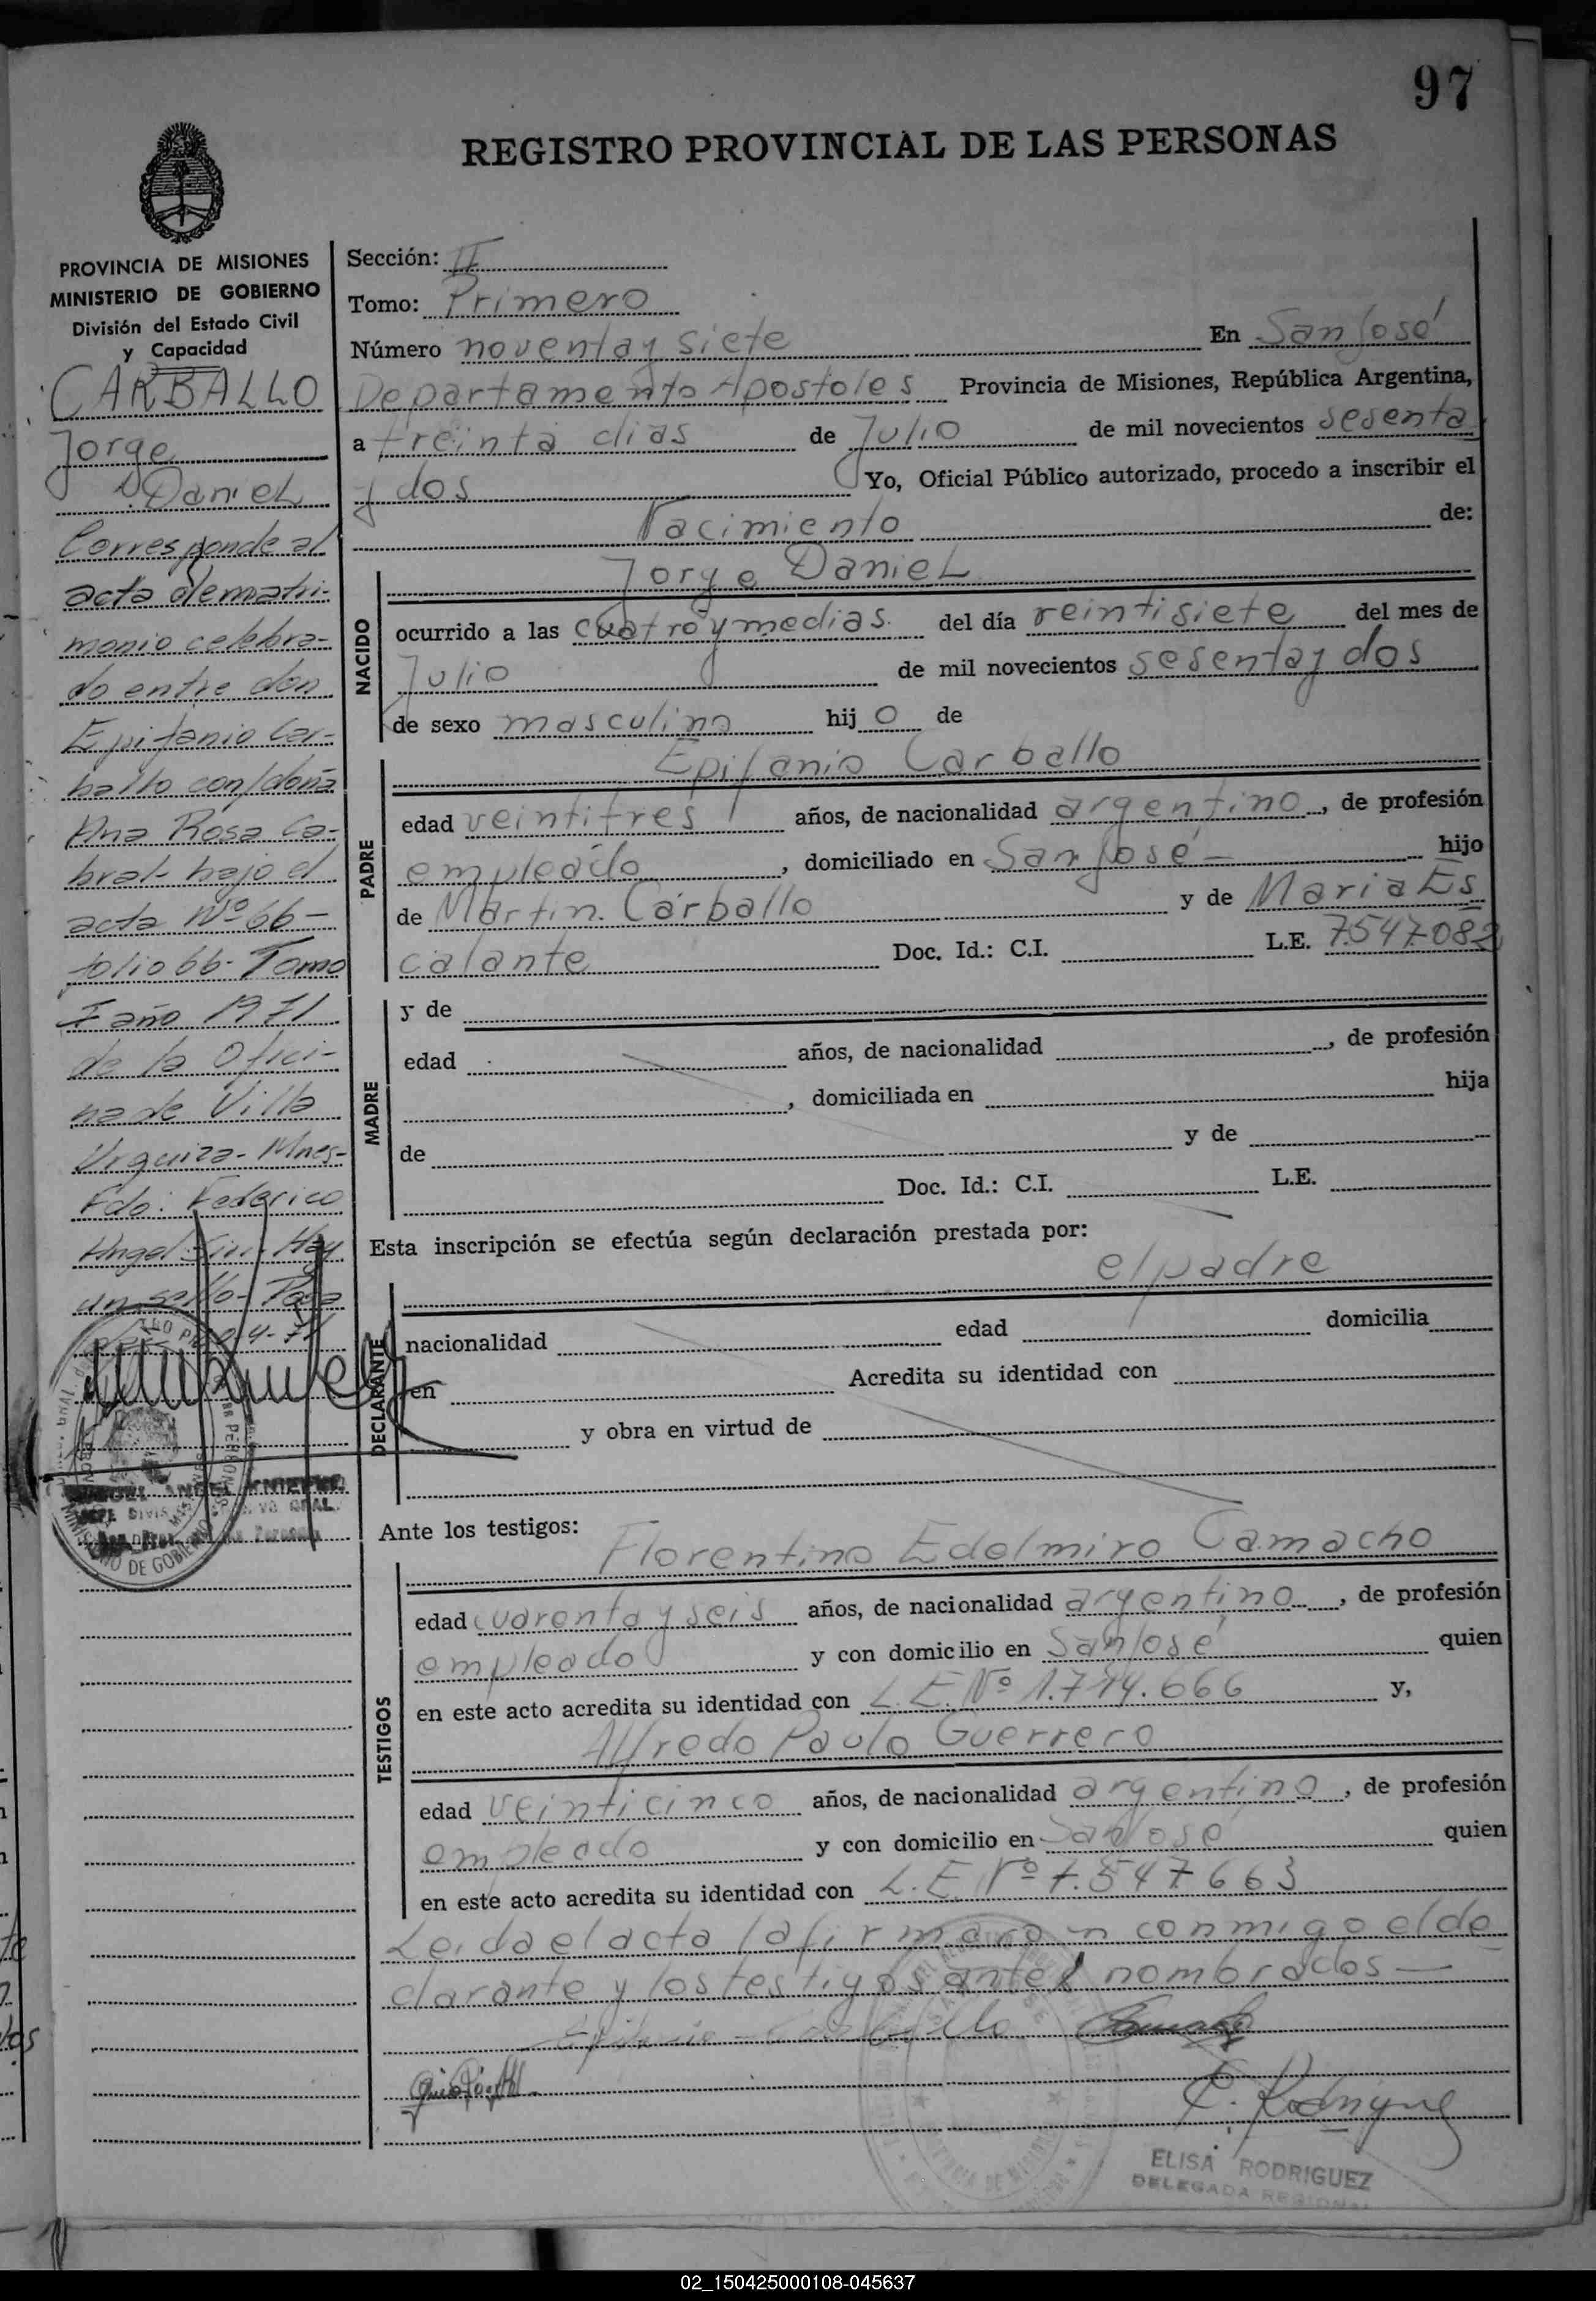 97
REGISTRO PROVINCIAL DE LAS PERSONAS
PROVINCIA DE MISIONES
MINISTERIO DE GOBIERNO
División del Estado Civil
y Capacidad
CARBALLO
Jorge
Daniel
Corresponde al
acta de matri-
monio celebra-
do entre don
Epifanio Car-
ballo con/doña
Ana Rosa Ca-
bral- bajo el
acta Nº 66-
folio 66- Tomo
I año 1971
de la Ofici-
na de Villa
Urquiza- Mnes-
Fdo: Federico
Angel Hay
un sello-
Sección: II
Tomo: Primero
Número noventa y siete En San José
Departamento Apostoles Provincia de Misiones, República Argentina,
a treinta dias de Julio de mil novecientos sesenta
y dos Yo, Oficial Público autorizado, procedo a inscribir el
Nacimiento de:
Jorge Daniel
NACIDO
ocurrido a las cuatro y medias del día veintisiete del mes de
Julio de mil novecientos sesenta y dos
de sexo masculino hijo de
PADRE
Epifanio Carballo
edad veintitres años, de nacionalidad argentino, de profesión
empleado, domiciliado en San José - hijo
de Martin Carballo y de Maria Es
calante Doc. Id.: C.I. L.E. 7.547.082
MADRE
y de
edad años, de nacionalidad , de profesión
, domiciliada en hija
de y de
Doc. Id.: C.I. L.E.
Esta inscripción se efectúa según declaración prestada por:
el padre
DECLARANTE
nacionalidad edad domicilia
en Acredita su identidad con
y obra en virtud de
Ante los testigos:
Florentino Edelmiro Camacho
TESTIGOS
edad cuarenta y seis años, de nacionalidad argentino, de profesión
empleado y con domicilio en San José quien
en este acto acredita su identidad con L.E. Nº 1.794.666 y,
Alfredo Paulo Guerrero
edad veinticinco años, de nacionalidad argentino, de profesión
empleado y con domicilio en San José quien
en este acto acredita su identidad con L.E. Nº 7.547663
Leida el acta la firmaron conmigo el de
clarante y los testigos antes nombrados-
Epifanio Carballo
E. Rodriguez
ELISA RODRIGUEZ
DELEGADA REGIONAL
02_150425000108-045637